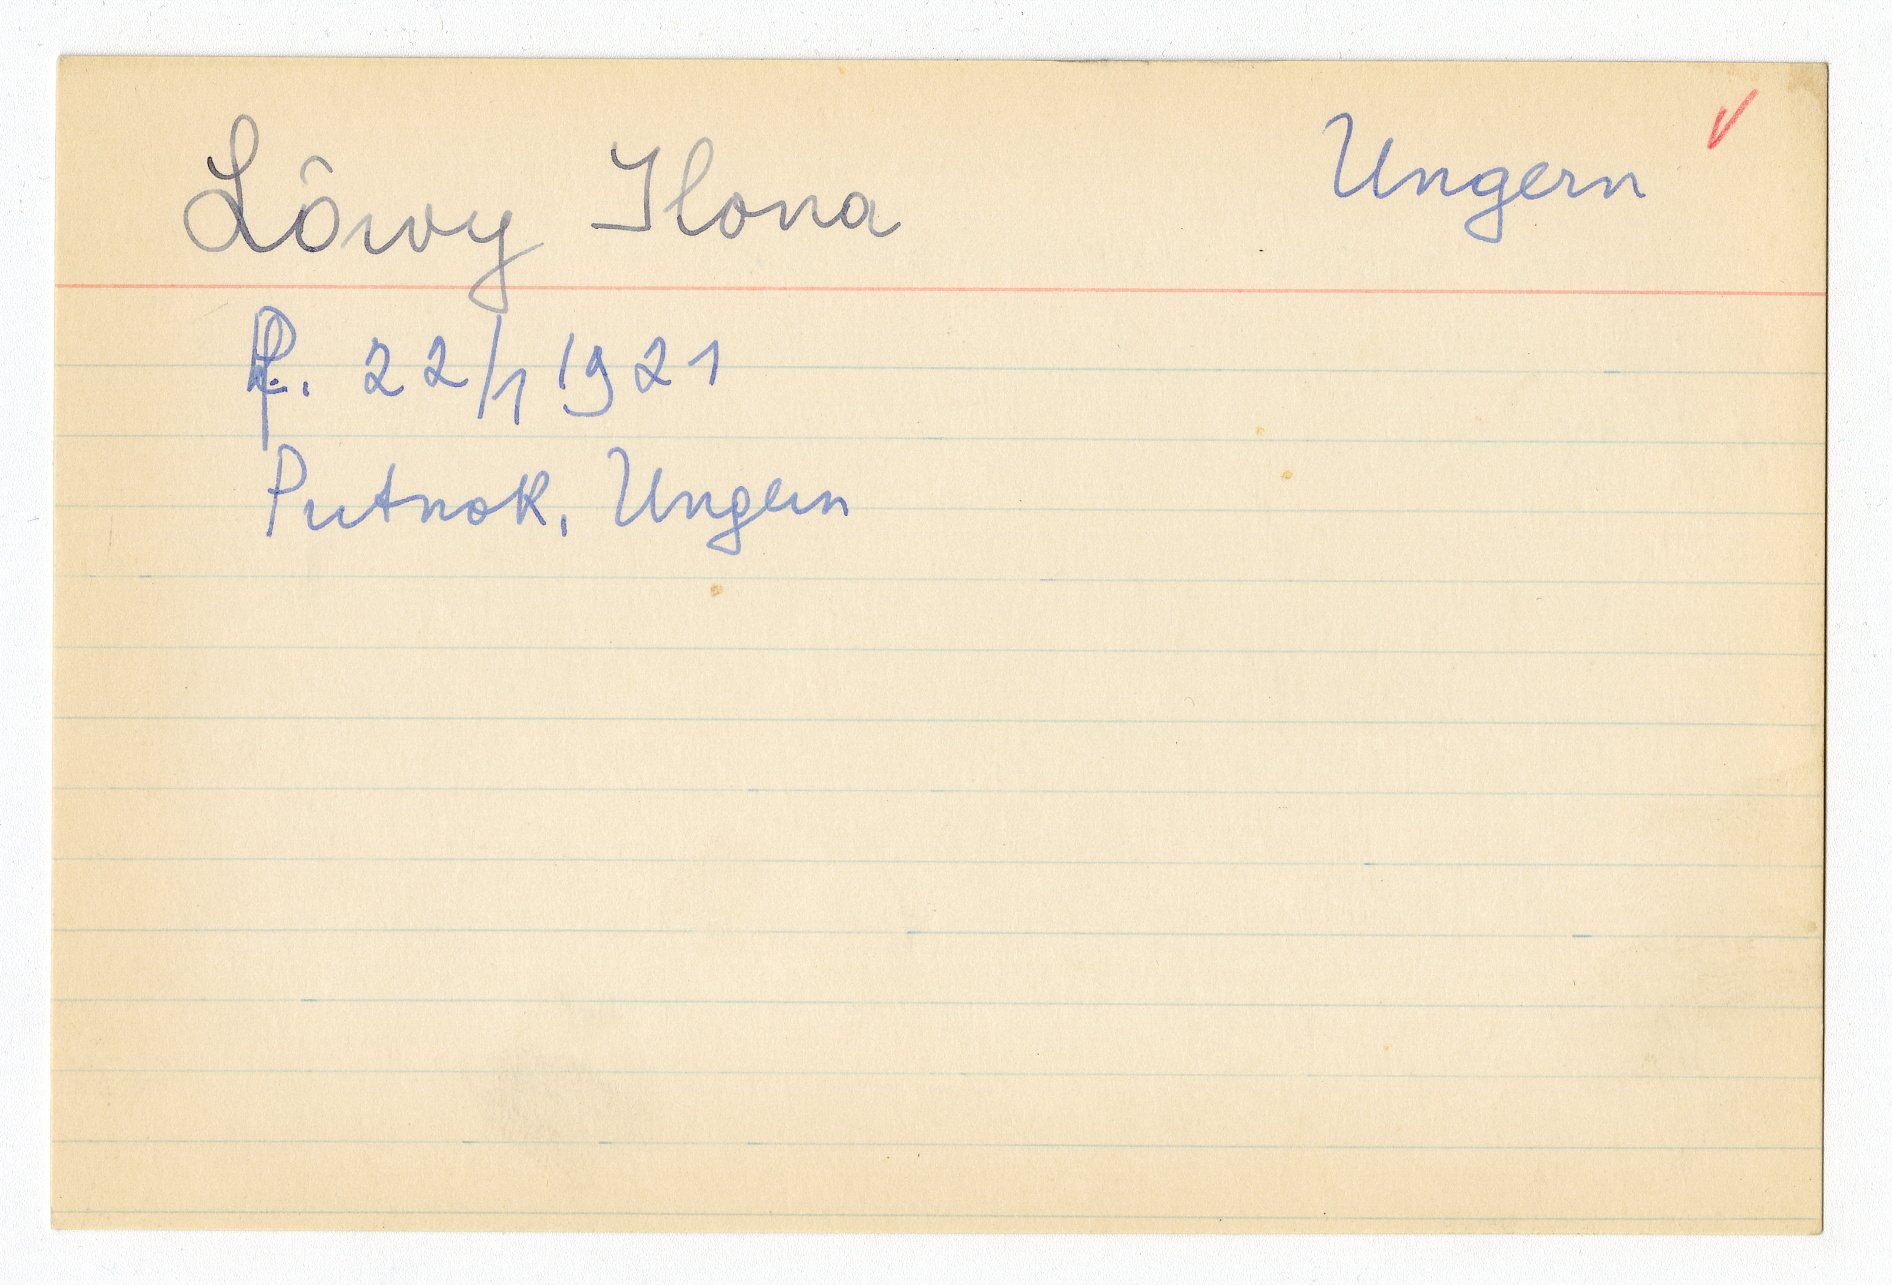 Löwy Ilona Ungern
f. 22/1 1921
Putnok, Ungern